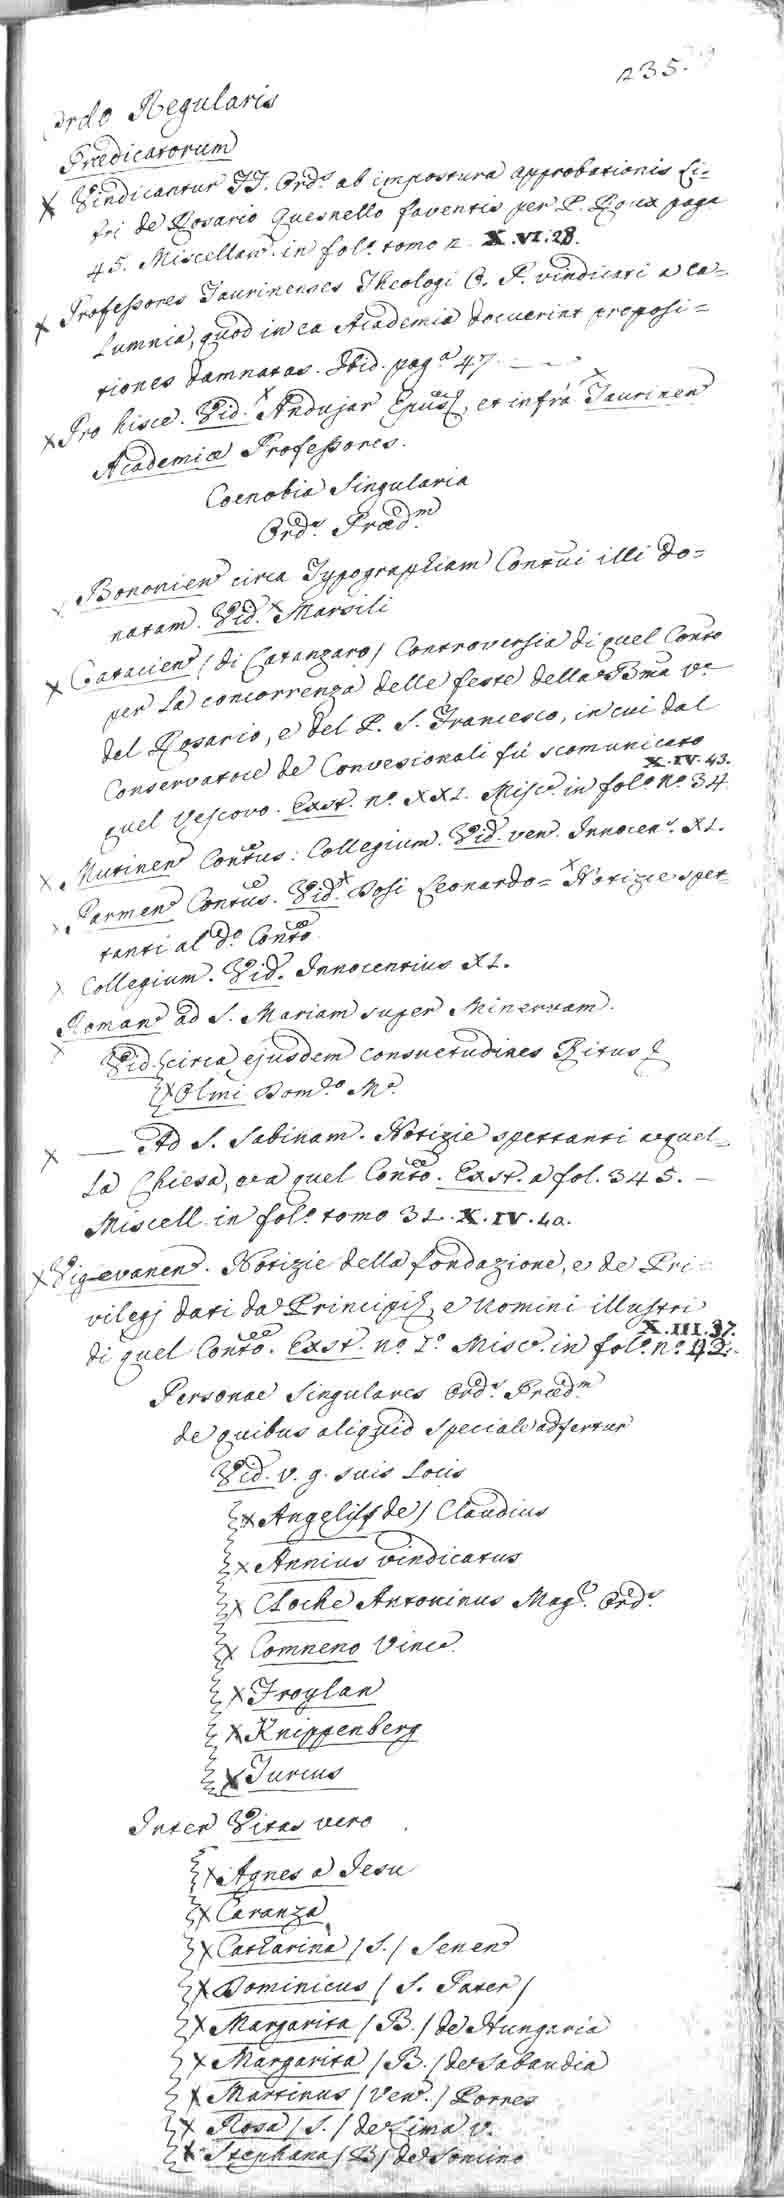 235.
Ordo Regularis
Prædicatorum
X Vindicantur FF. Ord.s ab impostura approbationis Li=
bri de Rosario Quesnello faventis per P. Roux pag.a
45. Miscellan. in fol.o tomo 2. X.VI.28.
X Professores Taurinenses Theologi O. P. vindicati a ca=
lumnia, quod in ea Academia docuerint proposi=
tiones damnatas. Ibid. pag.a 47. —
X Pro hisce. Vid. X Andujar Epus, et infra X Taurinen
Academiæ Professores.
Coenobia Singularia
Ord.s Præd.m
X Bononien circa Typographiam Contui illi do=
natam. Vid. X Marsili
X Catacien / di Catanzaro / Controversia di quel Conto
per la concorrenza delle feste della Bma V.e
del Rosario, e del P. S. Francesco, in cui dal
Conservatore de Convesionali fù scomunicato
quel Vescovo. Exst. n.o XXI. Misc. in fol.o n.o 34 X.IV.43.
X Mutinen Contus: Collegium. Vid. ven. Innocen.s XI.
X Parmen Contus. Vid. X Bosi Leonardo = X Notizie spet=
tanti al d.o Conto.
X Collegium. Vid. Innocentius XI.
Roman ad S. Mariam super Minervam.
X Vid. circa ejusdem consuetudines Ritus
X Olmi Dom.co M.a
X — Ad S. Sabinam. Notizie spettanti a quel=
la Chiesa, e a quel Conto. Exst. a fol. 345. —
Miscell. in fol.o tomo 31. X.IV.40.
X Vigevanen. Notizie della fondazione, e de Pri=
vilegj dati da Principi, e Uomini illustri
di quel Conto. Exst. n.o I.o Misc. in fol.o n.o 42. X.III.37.
Personae Singulares Ord.s Præd.m
de quibus aliquid speciale adfertur
Vid. v. g. suis Locis
X Angelis / de / Claudius
X Annius vindicatus
X Cloche Antoninus Mag.r Ord.s
X Comneno Vinc.
X Froylan
X Knippenberg
X Turcus
Inter Vitas vero
X Agnes a Jesu
X Caranza
X Catharina / S. / Senen
X Dominicus / S. Pater /
X Margarita / B. / de Hungaria
X Margarita / B. / de Sabaudia
X Martinus / Ven. / Porres
X Rosa / S. / de Lima v.
X Stephana / B / de Soncino